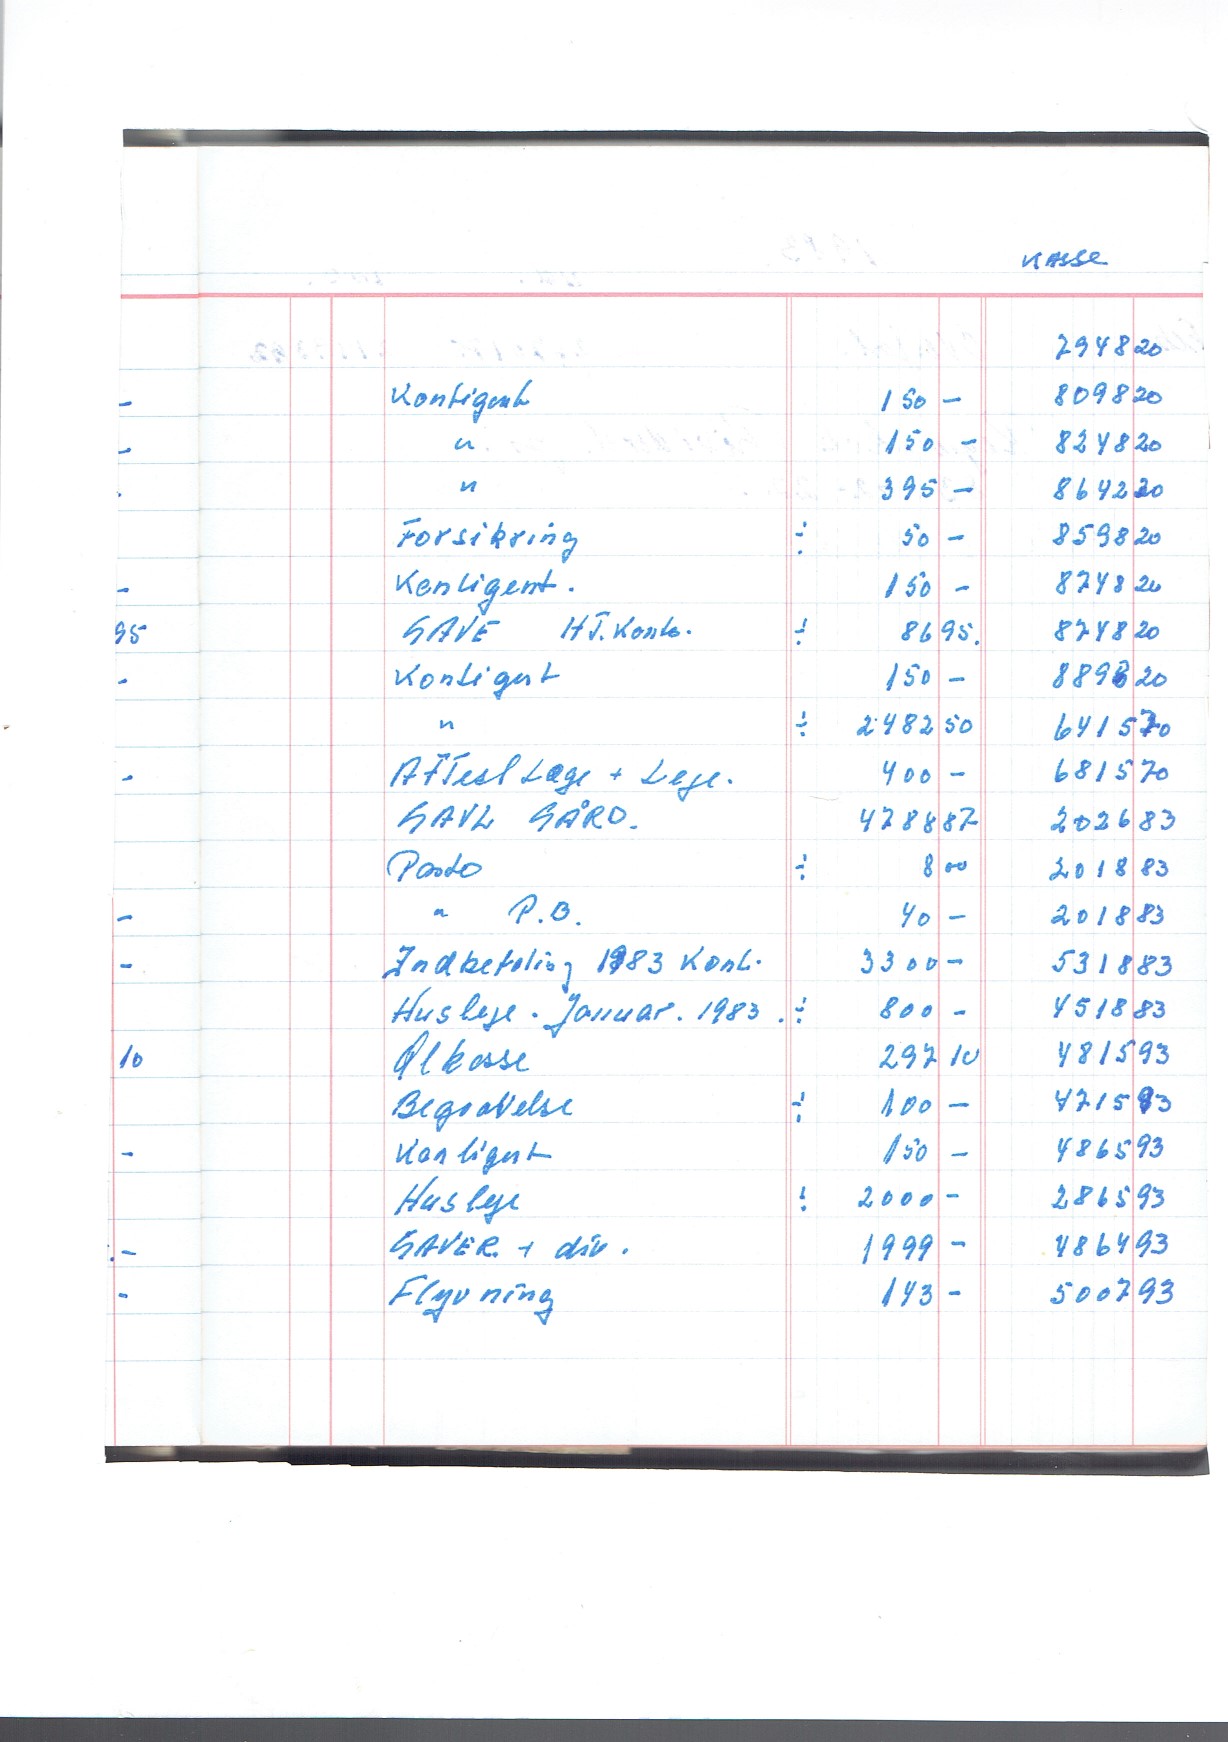 KASSE
7948 20
- Kontigent 150 - 8098 20
- " 150 - 8248 20
. " 395 - 8642 20
Forsikring ÷ 50 - 8598 20
- Kontigent. 150 - 8748 20
95 GAVE HT. Konto. ÷ 86 95. 8748 20
- Kontigent 150 - 8898 20
" ÷ 2482 50 6415 70
- ATTest Læge + Leje. 400 - 6815 70
GAVL GÅRD. 4788 87 2026 83
Porto ÷ 8 00 2018 83
- " P.B. 40 - 2018 83
- Indbetaling 1983 Kont. 3300 - 5318 83
Husleje. Januar. 1983. ÷ 800 - 4518 83
10 Ølkasse 297 10 4815 93
Begravelse ÷ 100 - 4715 93
- Kontigent 150 - 4865 93
Husleje ÷ 2000 - 2865 93
- GAVER. + div. 1999 - 4864 93
- Flyvning 143 - 5007 93